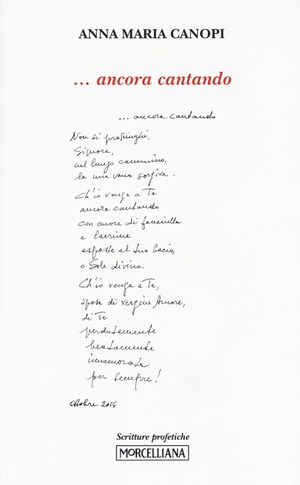 ANNA MARIA CANOPI
... ancora cantando
... ancora cantando
Non si prosciughi,
Signore,
nel lungo cammino,
la mia vena sorgiva.
Ch'io venga a Te
ancora cantando
con cuore di fanciulla
e lacrime
esposte al tuo bacio,
o Sole divino.
Ch'io venga a Te,
sposa di vergine Amore,
di Te
perdutamente
beatamente
innamorata
per sempre!
Ottobre 2014
Scritture profetiche
MORCELLIANA